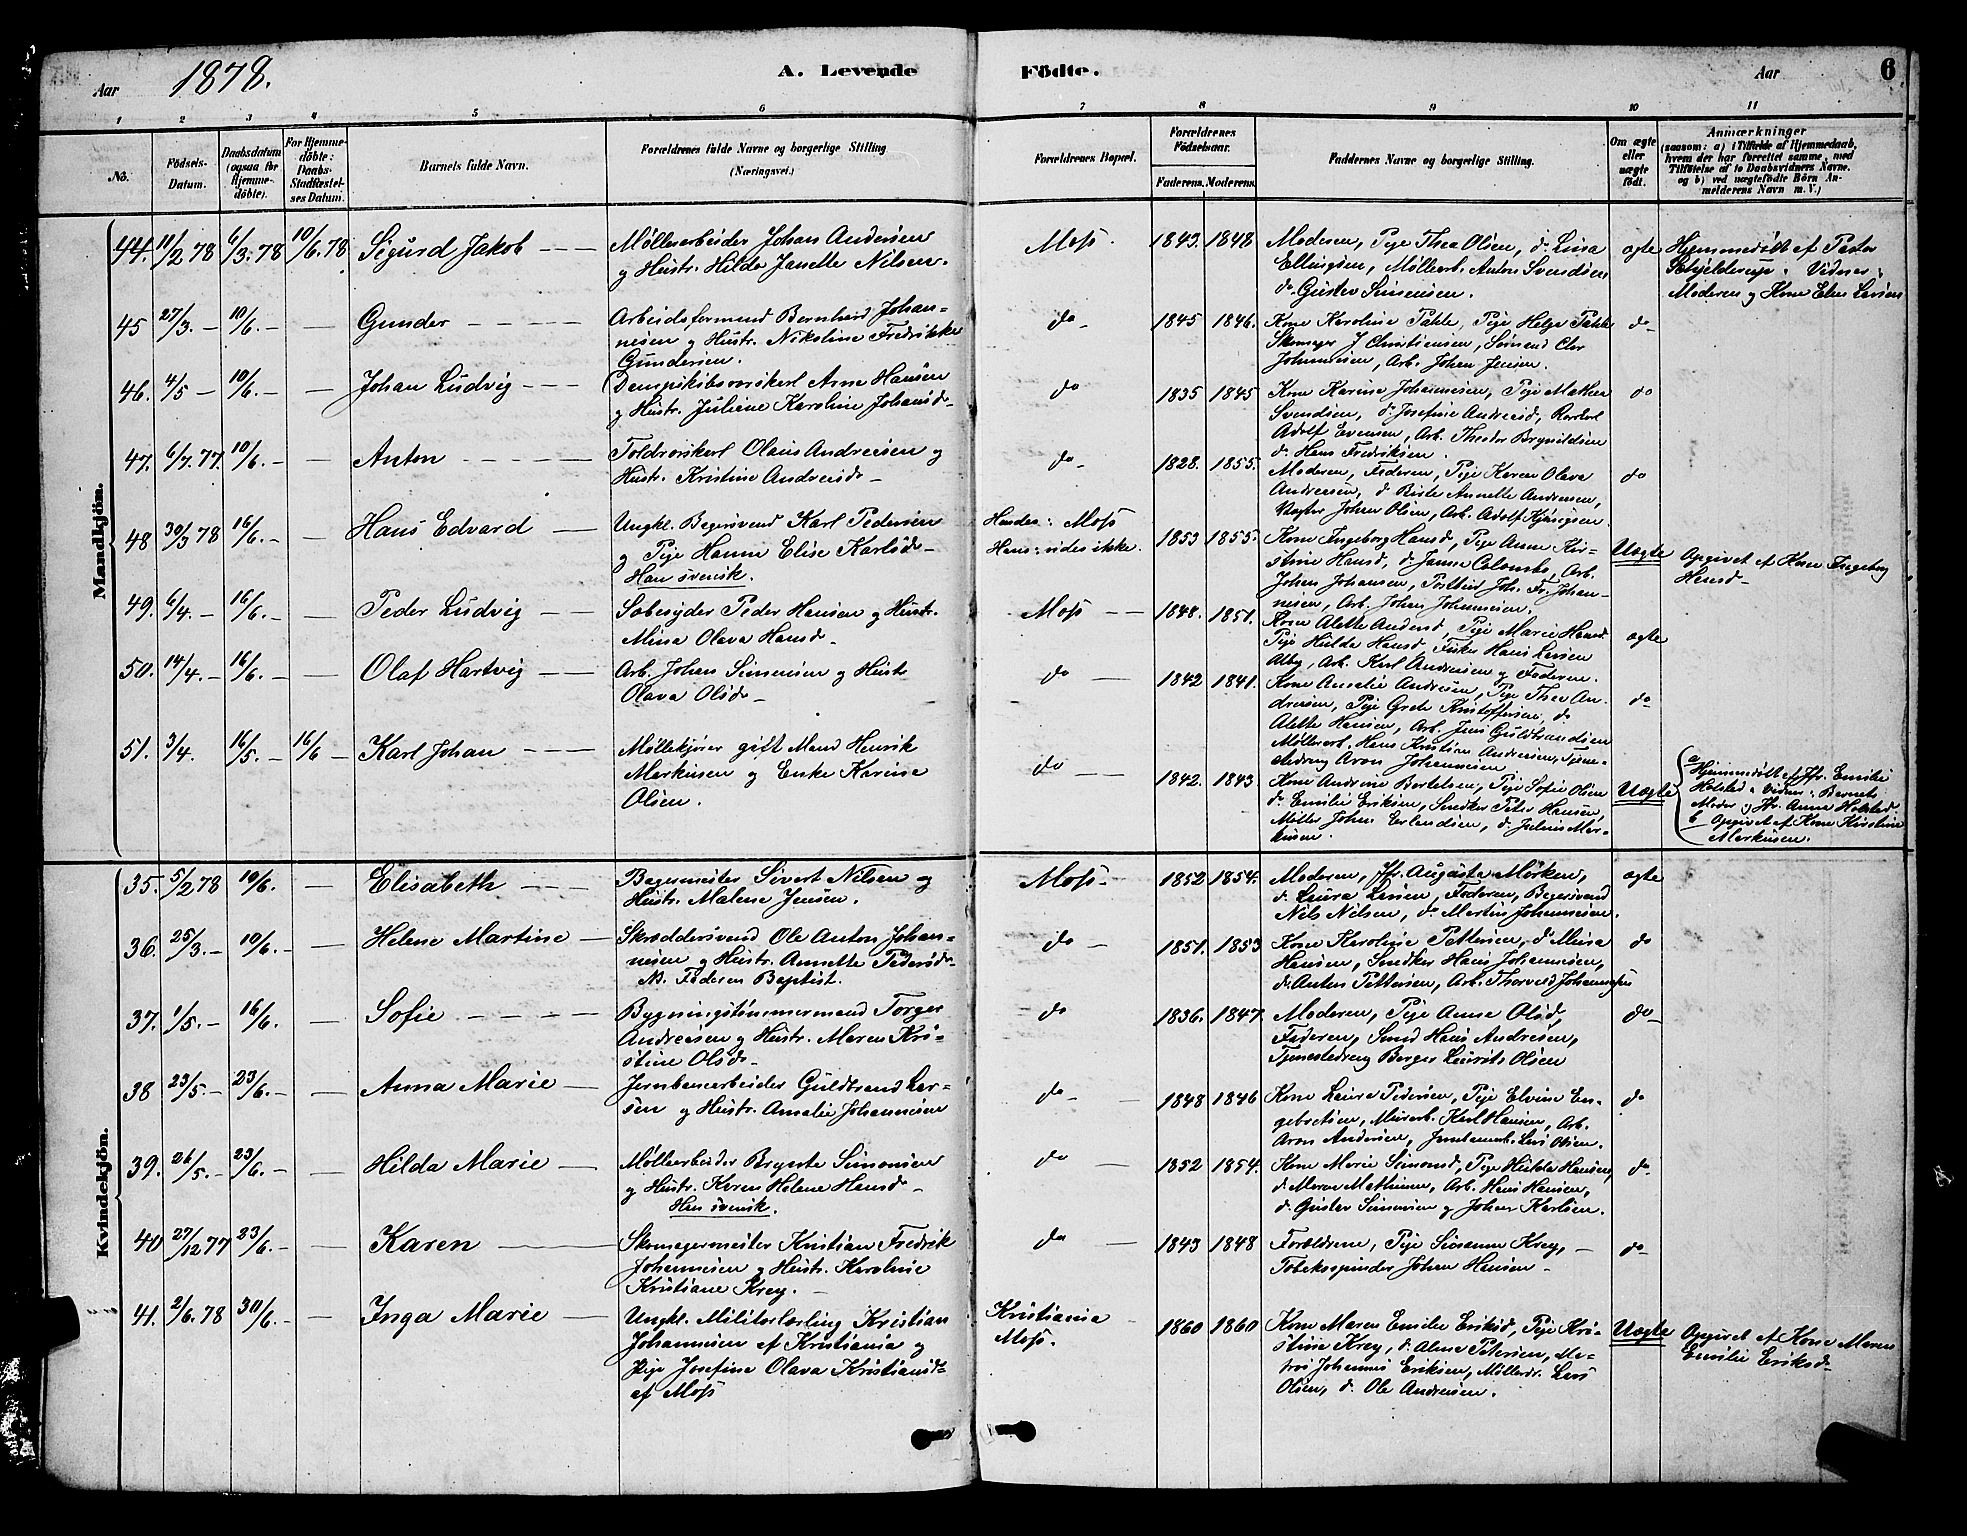 Aar 1878. A. Levende Födte. Aar 6
1 2 3 4 5 6 7 8 9 10 11
No.
Födsels-
Datum.
Daabsdatum
(ogsaa for
Hjemme-
döbte).
For Hjemme-
döbte:
Daabs-
Stadfæstel-
ses Datum.
Barnets fulde Navn.
Forældrenes fulde Navne og borgerlige Stilling
(Næringsvei.)
Forældrenes Bopæl.
Forældrenes
Födselsaar.
Faderens. Moderens.
Faddernes Navne og borgerlige Stilling.
Om ægte
eller
uægte
födt.
Anmærkninger
(saasom: a) i Tilfælde af Hjemmedaab,
hvem der har forrettet samme, med
Tilföielse af to Daabsvidners Navne,
og b) ved uægtefödte Börn An-
melderens Navn m. V.)
Mandkjön.
44. 11/2 78 6/3. 78 10/6. 78 Sigurd Jakob
Møllearbeider Johan Andersen
og Hustr. Hilda Janette Nilsen.
Moss. 1843. 1848
Moderen, Pige Thea Olsen, do Lovisa
Ellingsen, Møllearb. Anton Svendsen
do Gustav Simensen.
ægte
Hjemmedøbt af Pastor
Schjelderup. Vidner:
Moderen og Kone Elen Larsen
45 27/3. - 10/6. - Gunder
Arbeidsformand Bernhard Johan-
nesen og Hustr. Nikoline Fredrikke
Gundersen.
do 1845 1846.
Kone Karoline Pahle, Pige Helga Pahle
Skomager J Christiensen, Sømand Chr
Johannesen, Arb. Johan Jensen.
do-
46. 4/5 - 10/6. - Johan Ludvig
Dampskibsvorskarl Arne Hansen
og Hustr. Juliane Karoline Johansd-
do 1835 1845
Kone Karine Johannesen, Pige Mathea
Svendsen, do Josefine Andersd,
Adolf Evensen, Arb. Theodor Brynildsen
do Hans Fredriksen.
do
47. 6/7. 77. 10/6. - Anton
Toldrorskarl Olaus Andreasen og
Hustr. Kristine Andreasd-
do- 1828. 1855.
Moderen, Faderen, Pige Karen Olava
Andreasen, do Birte Annette Andresen,
Vægter Johan Olsen, Arb. Adolf
do
48 30/3 78 16/6. - Hans Edvard
Ungkl. Bagersvend Karl Pedersen
og Pige Hanna Elise Karlsd-
Han svensk.
Hendes: Moss
Hans: vides ikke. 1853 1855.
Kone Ingeborg Hansd, Pige Anne Kir-
stine Hansd, do Janna Colombo, Arb.
Johan Johansen, Postbud Joh. Fr. Johan-
nesen, Arb. Johan Johannesen.
Uægte
Opgivet af Kone Ingeborg
Hansd-
49. 6/4. - 16/6. - Peder Ludvig
Sæbesyder Peder Hansen og Hustr.
Mina Olava Hansd-
Moss 1848. 1851.
Kone Alette Andersd, Pige Marie Hansd.
Pige Hulda Hansd, Fisker Hans Larsen
Alby, Arb. Karl Andresen og Faderen.
ægte
50. 14/4. - 16/6. - Olaf Hartvig
Arb. Johan Simensen og Hustr
Olava Olsd-
do 1842 1841.
Kone Amalie Andresen, Pige Thea An-
dresen, Pige Grete Kristoffersen, do
Alette Hansen, Arb. Jens Guldbrandsen
Møllearb. Hans Kristian Andresen, Tjene-
stedreng Aron Johannesen
do-
51. 3/4. 16/5. - 16/6 - Karl Johan
Møllekjører gift Mand Henrik
Markusen og Enke Karine
Olsen.
do 1842. 1843
Kone Andrine Bertelsen, Pige Sofie Olsen
do Emilie Eriksen, Snedker Peter Hansen,
Møller Johan Erlandsen, do Julius Mar-
kusen.
Uægte
a Hjemmedøbt af Jfr. Emilie
Holstad. Vidner: Barnets
Moder og Jfr. Anna Holstad.
b Opgivet af Kone Kirstine
Markusen.
Kvindekjön.
35. 5/2 78 10/6. - Elisabeth
Bagermester Sivert Nilsen og
Hustr. Malene Jensen.
Moss- 1852 1854.
Moderen, Jfr. Augusta Mørken,
do Laura Larsen, Faderen, Bagersvend
Nils Nilsen, do Martin Johannesen.
ægte
36. 25/3. - 10/6. - Helene Martine
Skræddersvend Ole Anton Johan-
nesen og Hustr. Annette Pedersd-
N. Faderen Baptist.
do 1851. 1853
Kone Karoline Pettersen, do Mina
Hansen, Snedker Hans Johannesen,
do Anton Pettersen, Arb. Thorvald Johannesen
do
37. 1/5. - 16/6. - Sofie
Bygningstømmermand Torger
Andreasen og Hustr. Maren Kri-
stine Olsd-
do 1836. 1847
Moderen, Pige Anna Olsd,
Faderen, Smed Hans Andresen,
Tjenestedreng Berger Laurits Olsen
do-
38 23/5. - 23/6. - Anna Marie
Jernbanearbeider Guldbrand Lar-
sen og Hustr. Amalie Johannesen
do- 1848 1846
Kone Laura Pedersen, Pige Elvine En-
gebretsen, Murarb. Karl Hansen, Arb.
Aron Andersen, Jernbanearb. Lars Olsen.
do
39. 26/5. - 23/6. - Hilda Marie
Møllearbeider Brynte Simonsen
og Hustr. Karen Helene Hansd-
Han svensk.
do 1852 1854.
Kone Marie Simonsd, Pige Hulda Hansen,
do Maren Mathisen, Arb. Hans Hansen,
do Gustav Simonsen og Johan Karlsen.
do-
40 27/12 77 23/6. - Karen
Skomagermester Kristian Fredrik
Johannesen og Hustr. Karoline
Kristiane Krey.
do 1843 1848
Forældrene, Pige Susanne Krey,
Tobakspinder Johan Hansen-
do-
41. 2/6. 78 30/6. - Inga Marie
Ungkl. Militærlærling Kristian
Johannesen af Kristiania og
Pige Josefine Olava Kristiansd-
af Moss
Kristiania
Moss. 1860 1860
Kone Maren Emilie Eriksd, Pige Kri-
stine Krey, do Alma Petersen, Ma-
tros Johannes Eriksen, Møllerdr. Lars
Olsen, do Ole Andresen.
Uægte
Opgivet af Kone Maren
Emilie Eriksd-